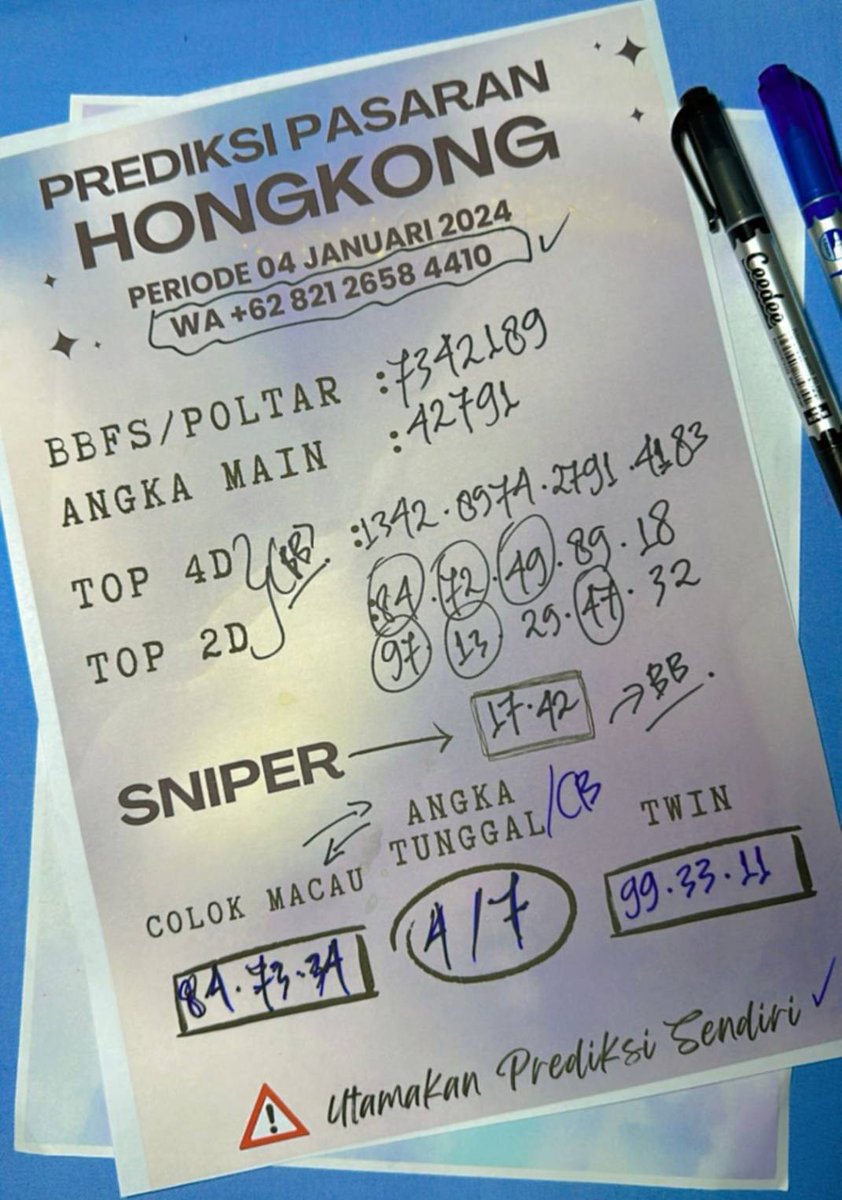 PREDIKSI PASARAN
HONGKONG
PERIODE 04 JANUARI 2024
WA +62 821 2658 4410
BBFS/POLTAR :7342189
ANGKA MAIN :42791
TOP 4D (BB) :1342.8974.2791.4183
TOP 2D :84.72.49.89.18
97 13 29.47.32
SNIPER → 17.42 → BB.
COLOK MACAU
84.73.34
ANGKA
TUNGGAL/CB
4/7
TWIN
99.33.11
Utamakan Prediksi Sendiri
Ceedee